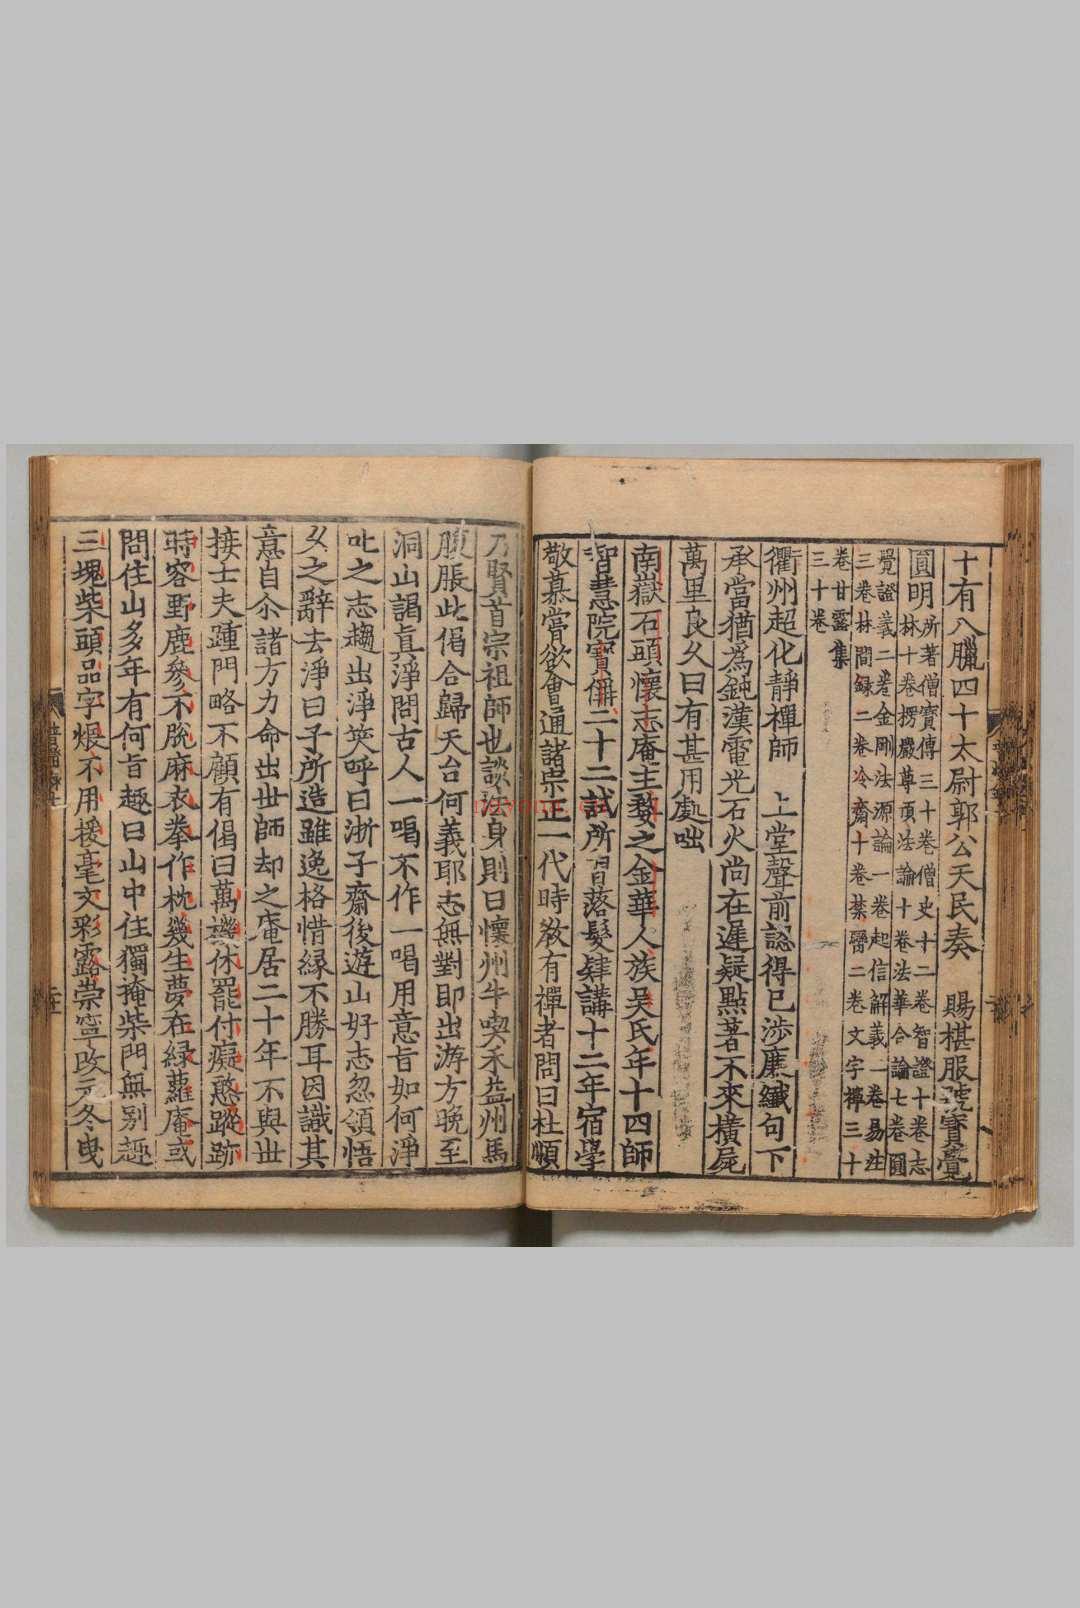 十有八臘四十太尉郭公天民奏　賜椹服號寶覺
圓明所著僧寶傳三十卷僧史十二卷智證十卷志
林十卷楞嚴尊頂法論十卷法華合論七卷圓
覺證義二卷金剛法源論一卷起信解義一卷易注
三卷林間録二卷冷齋十卷禁臠二卷文字禪三十
卷甘露集
三十卷
衢州超化靜禪師　上堂聲前認得已涉廉纖句下
承當猶為鈍漢電光石火尚在遲疑點著不來橫屍
萬里良久曰有甚用處咄
南嶽石頭懷志庵主婺之金華人族吳氏年十四師
智慧院寶偁二十二試所習落髮肄講十二年宿學
敬慕嘗欲會通諸宗正一代時教有禪者問曰杜順
乃賢首宗祖師也談法身則曰懷州牛喫禾益州馬
腹脹此偈合歸天台何義耶志無對即出游方晚至
洞山謁真淨問古人一喝不作一喝用意旨如何淨
叱之志趨出淨笑呼曰浙子齋後遊山好志忽領悟
久之辭去淨曰子所造雖逸格惜緣不勝耳因識其
意自尒諸方力命出世師却之庵居二十年不與世
接士夫踵門略不顧有偈曰萬機休罷付癡憨蹤跡
時容野鹿參不脫麻衣拳作枕幾生夢在綠蘿庵或
問住山多年有何旨趣曰山中住獨掩柴門無別趣
三塊柴頭品字煨不用援毫文彩露崇寧改元冬曳